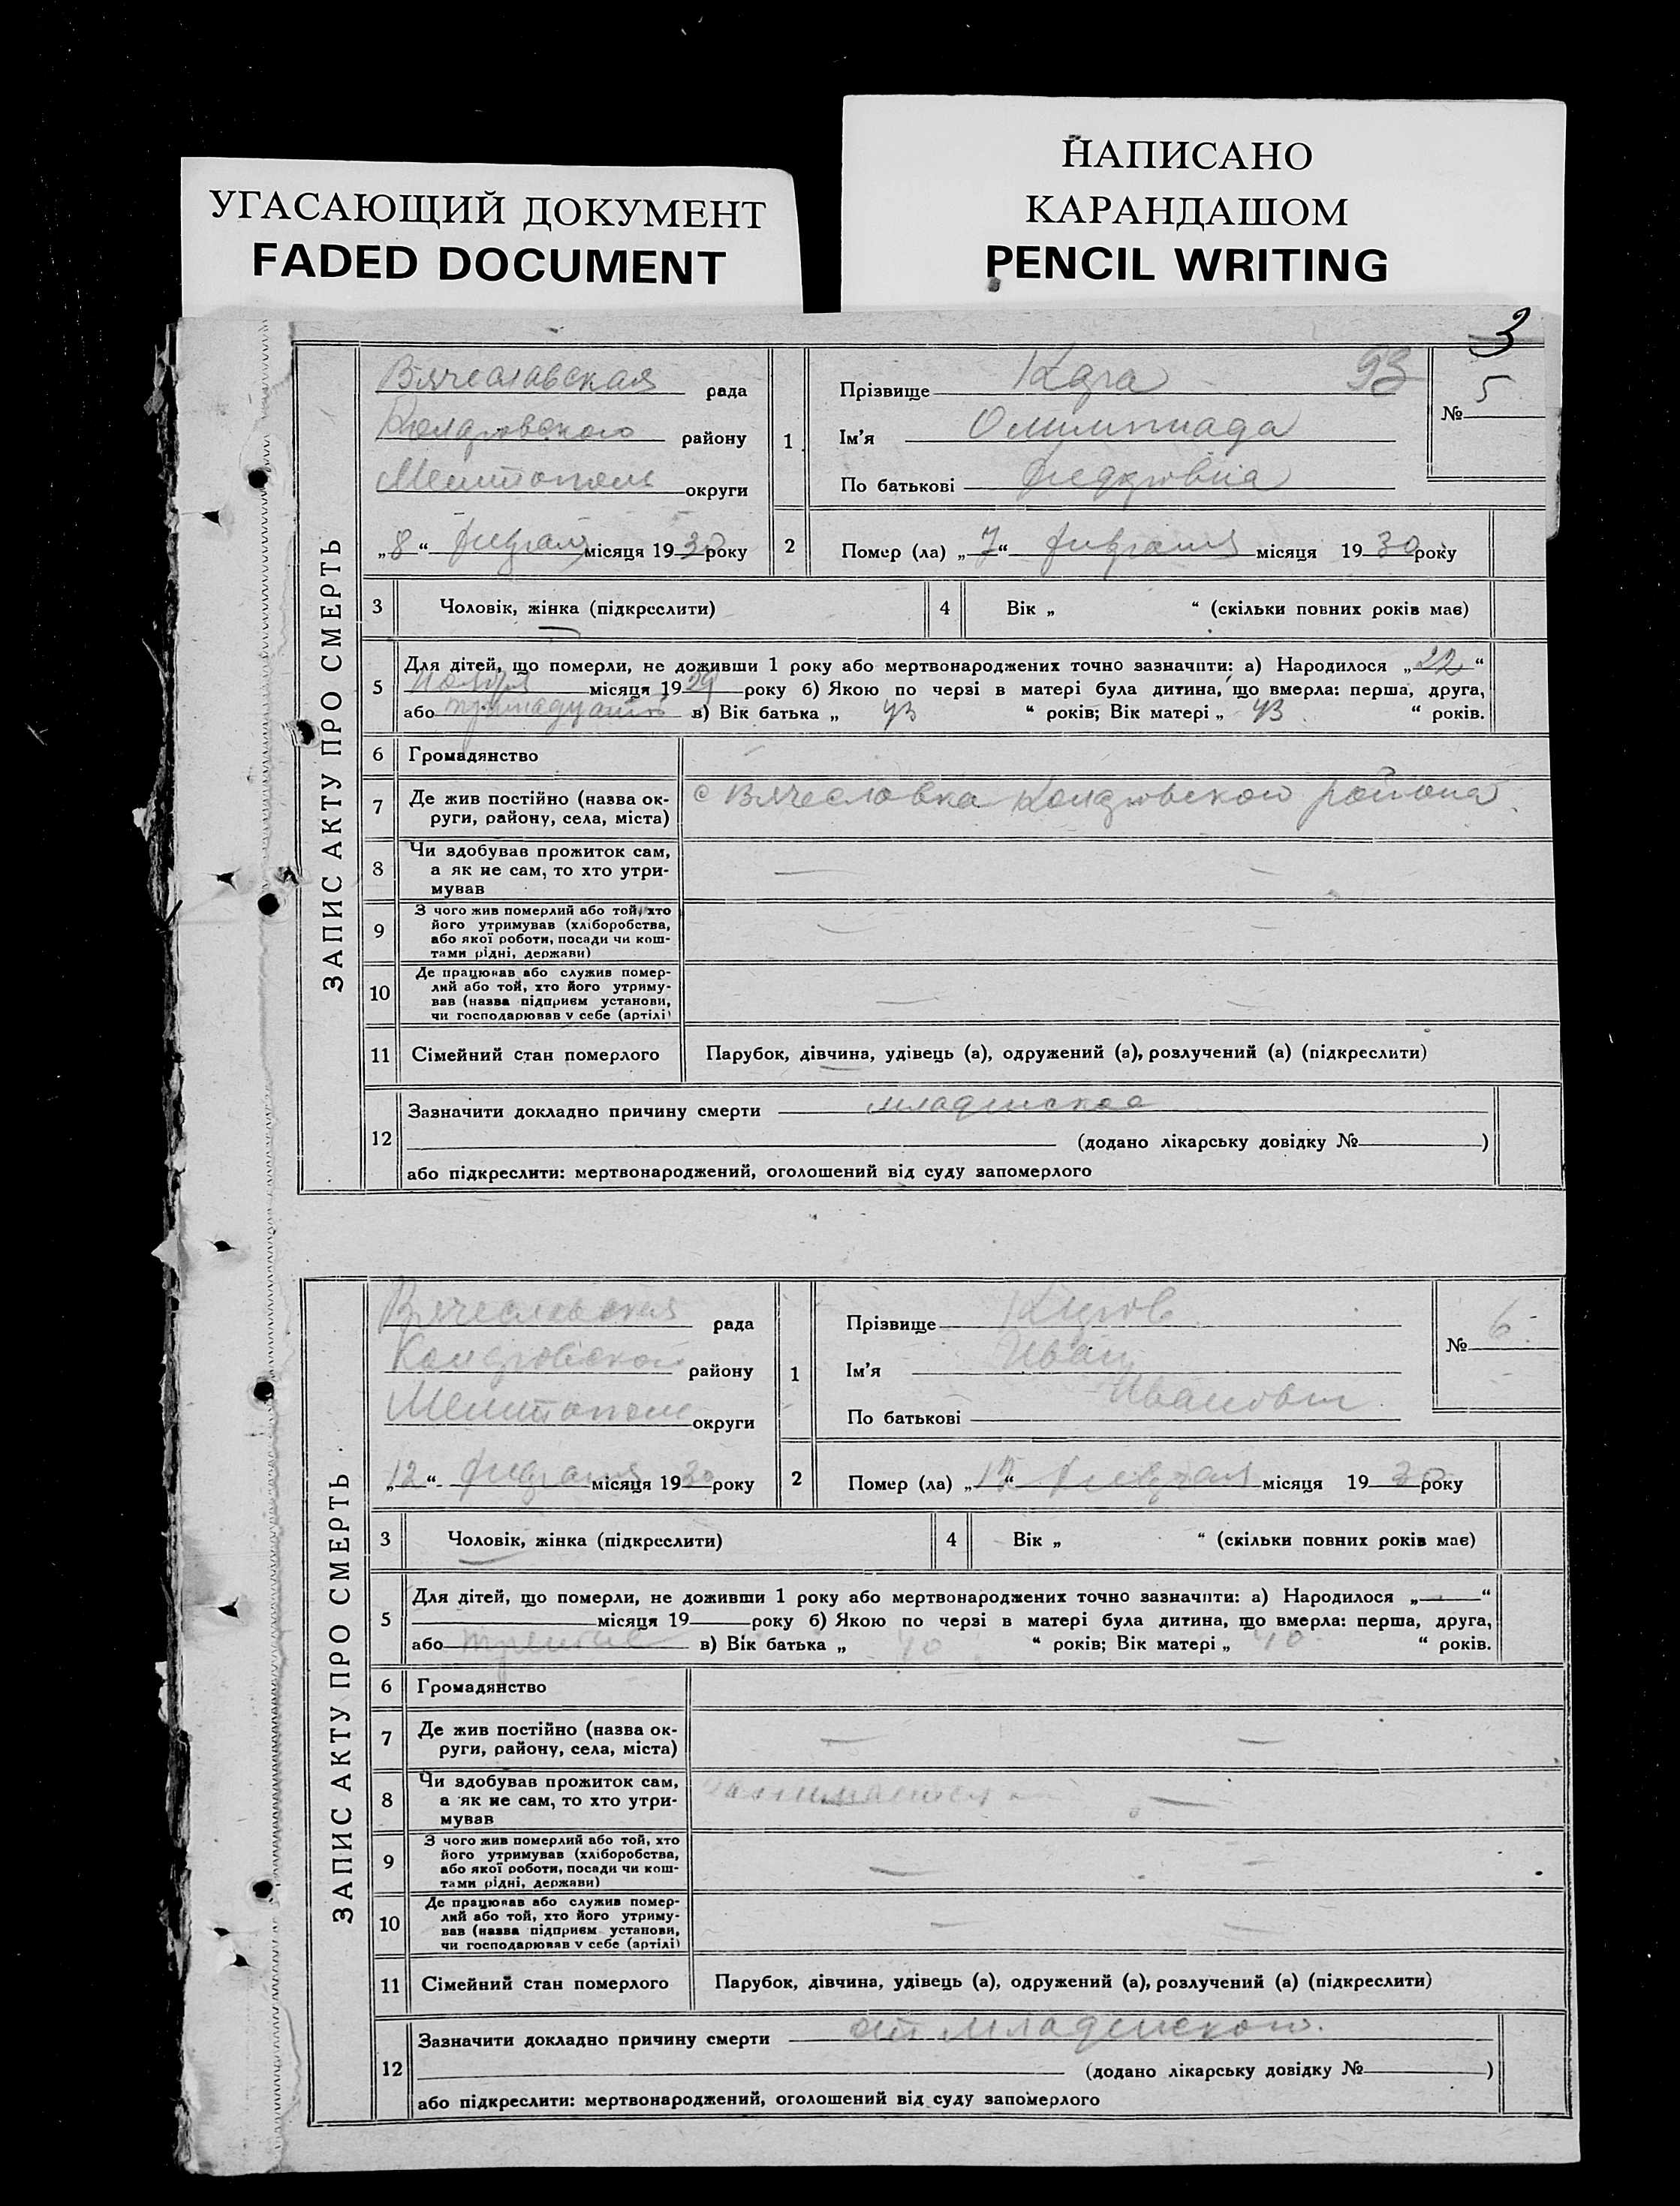 УГАСАЮЩИЙ ДОКУМЕНТ
FADED DOCUMENT
НАПИСАНО
КАРАНДАШОМ
PENCIL WRITING
3
ЗАПИС АКТУ ПРО СМЕРТЬ
Вячеславская рада
району
Мелитополь округи
„8“ февраля місяця 1930 року
1
Прізвище 93
Ім'я Олимпиада
По батькові
№ 5
2
Помер (ла) „7“ февраля місяця 1930 року
3
Чоловік, жінка (підкреслити)
4
Вік „ “ (скільки повних років має)
5
Для дітей, що померли, не доживши 1 року або мертвонароджених точно зазначити: а) Народилося „22“
Ноября місяця 1929 року б) Якою по черзі в матері була дитина, що вмерла: перша, друга,
або в) Вік батька „ 43 “ років; Вік матері „ 43 “ років.
6
Громадянство
7
Де жив постійно (назва ок-
руги, району, села, міста)
с Вячеславка района
8
Чи здобував прожиток сам,
а як не сам, то хто утри-
мував
9
З чого жив померлий або той, хто
його утримував (хліборобства,
або якої роботи, посади чи кош-
тами рідні, держави)
10
Де працював або служив помер-
лий або той, хто його утриму-
вав (назва підприєм установи,
чи господарював у себе (артілі)
11
Сімейний стан померлого
Парубок, дівчина, удівець (а), одружений (а), розлучений (а) (підкреслити)
12
Зазначити докладно причину смерти младенская
(додано лікарську довідку № )
або підкреслити: мертвонароджений, оголошений від суду запомерлого
ЗАПИС АКТУ ПРО СМЕРТЬ
Вячеславская рада
району
Мелитополь округи
„12“ февраля місяця 1930 року
1
Прізвище
Ім'я Иван
По батькові Иванович
№ 6
2
Помер (ла) „12“ февраля місяця 1930 року
3
Чоловік, жінка (підкреслити)
4
Вік „ “ (скільки повних років має)
5
Для дітей, що померли, не доживши 1 року або мертвонароджених точно зазначити: а) Народилося „ “
місяця 19 року б) Якою по черзі в матері була дитина, що вмерла: перша, друга,
або в) Вік батька „ 40 “ років; Вік матері „ 40 “ років.
6
Громадянство
7
Де жив постійно (назва ок-
руги, району, села, міста)
8
Чи здобував прожиток сам,
а як не сам, то хто утри-
мував
9
З чого жив померлий або той, хто
його утримував (хліборобства,
або якої роботи, посади чи кош-
тами рідні, держави)
10
Де працював або служив помер-
лий або той, хто його утриму-
вав (назва підприєм установи,
чи господарював у себе (артілі)
11
Сімейний стан померлого
Парубок, дівчина, удівець (а), одружений (а), розлучений (а) (підкреслити)
12
Зазначити докладно причину смерти от младенской.
(додано лікарську довідку № )
або підкреслити: мертвонароджений, оголошений від суду запомерлого